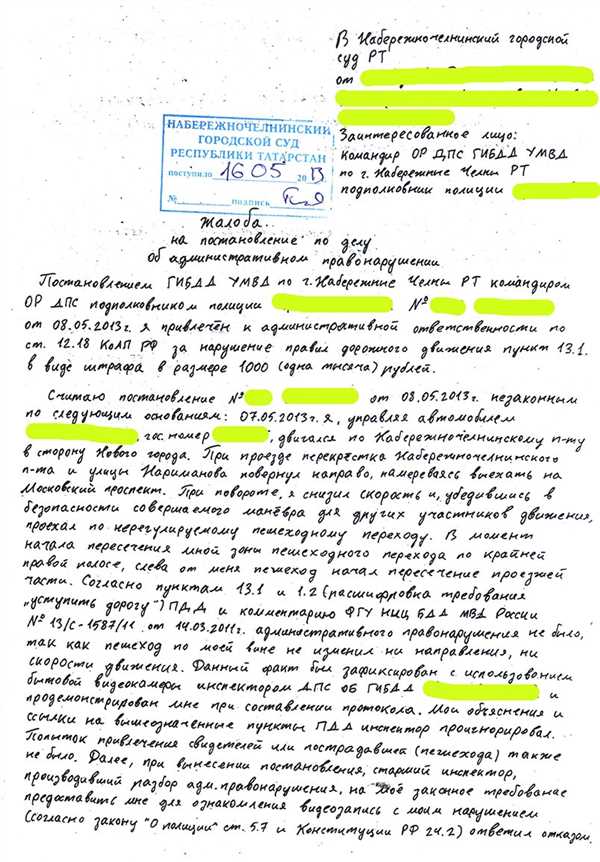 В Набережночелнинский городской
суд РТ
от
Заинтересованное лицо:
командир ОР ДПС ГИБДД УМВД
по г. Набережные Челны РТ
подполковник полиции
НАБЕРЕЖНОЧЕЛНИНСКИЙ
ГОРОДСКОЙ СУД
РЕСПУБЛИКИ ТАТАРСТАН
поступило 16 05 2013
№ подпись
Жалоба
на постановление по делу
Об административном правонарушении
Постановлением ГИБДД УМВД по г. Набережние Челны РТ командиром
ОР ДПС подполковником полиции №
от 08.05.2013г. я привлечён к административной ответственности по
ст. 12.18 КоАП РФ за нарушение правил дорожного движения пункт 13.1.
в виде штрафа в размере 1000 (одна тысяча) рублей.
Считаю постановление № от 08.05.2013г. незаконным
по следующим основаниям: 07.05.2013г. я, управляя автомобилем
, гос. номер , двигался по Набережночелнинскому п-ту
в сторону Нового города. При проезде перекрёстка Набережночелнинского
п-та и улицы Нариманова повернул направо, намереваясь выехать на
Московский проспект. При повороте, я снизил скорость и, убедившись в
безопасности совершаемого манёвра для других участников движения,
проехал по нерегулируемому пешеходному переходу. В момент
начала пересечения мной зоны пешеходного перехода по крайней
правой полосе, слева от меня пешеход начал пересечение проезжей
части. Согласно пунктам 13.1 и 1.2 (расшифровка требования
„уступить дорогу") ПДД и комментарию ФГУ НИЦ БДД МВД России
№ 13/с-1587/11 от 14.03.2011г. административного правонарушения не было,
так как пешеход по моей вине не изменил ни направления, ни
скорости движения. Данный факт был зафиксирован с использованием
бытовой видеокамеры инспектором ДПС ОБ ГИБДД и
продемонстрирован мне при составлении протокола. Мои объяснения и
ссылки на вышеозначенные пункты ПДД инспектор проигнорировал.
Попыток привлечения свидетелей или пострадавшего (пешехода) также
не было. Далее, при вынесении постановления, старший инспектор,
производивший разбор адм. правонарушения, на моё законное требование
предоставить мне для ознакомления видеозапись с моим нарушением
(согласно закону "О полиции" ст. 5.7 и Конституции РФ 24.2) ответил отказом.